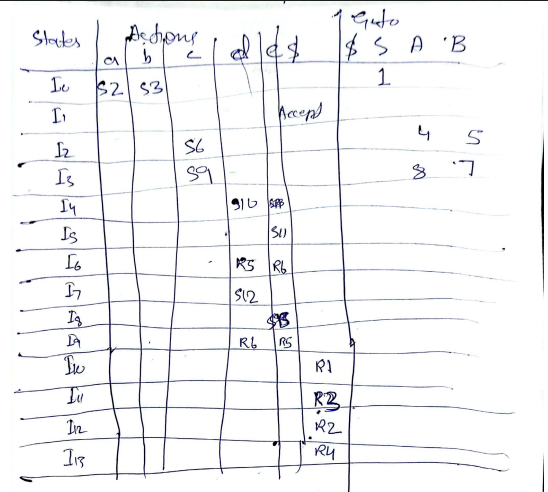 States Actions Goto
a b c d e $ $ S A B
I0 S2 S3 1
I1 Accept
I2 S6 4 5
I3 S9 8 7
I4 S10
I5 S11
I6 R5 R6
I7 S12
I8
I9 R6 R5
I10 R1
I11 R3
I12 R2
I13 R4